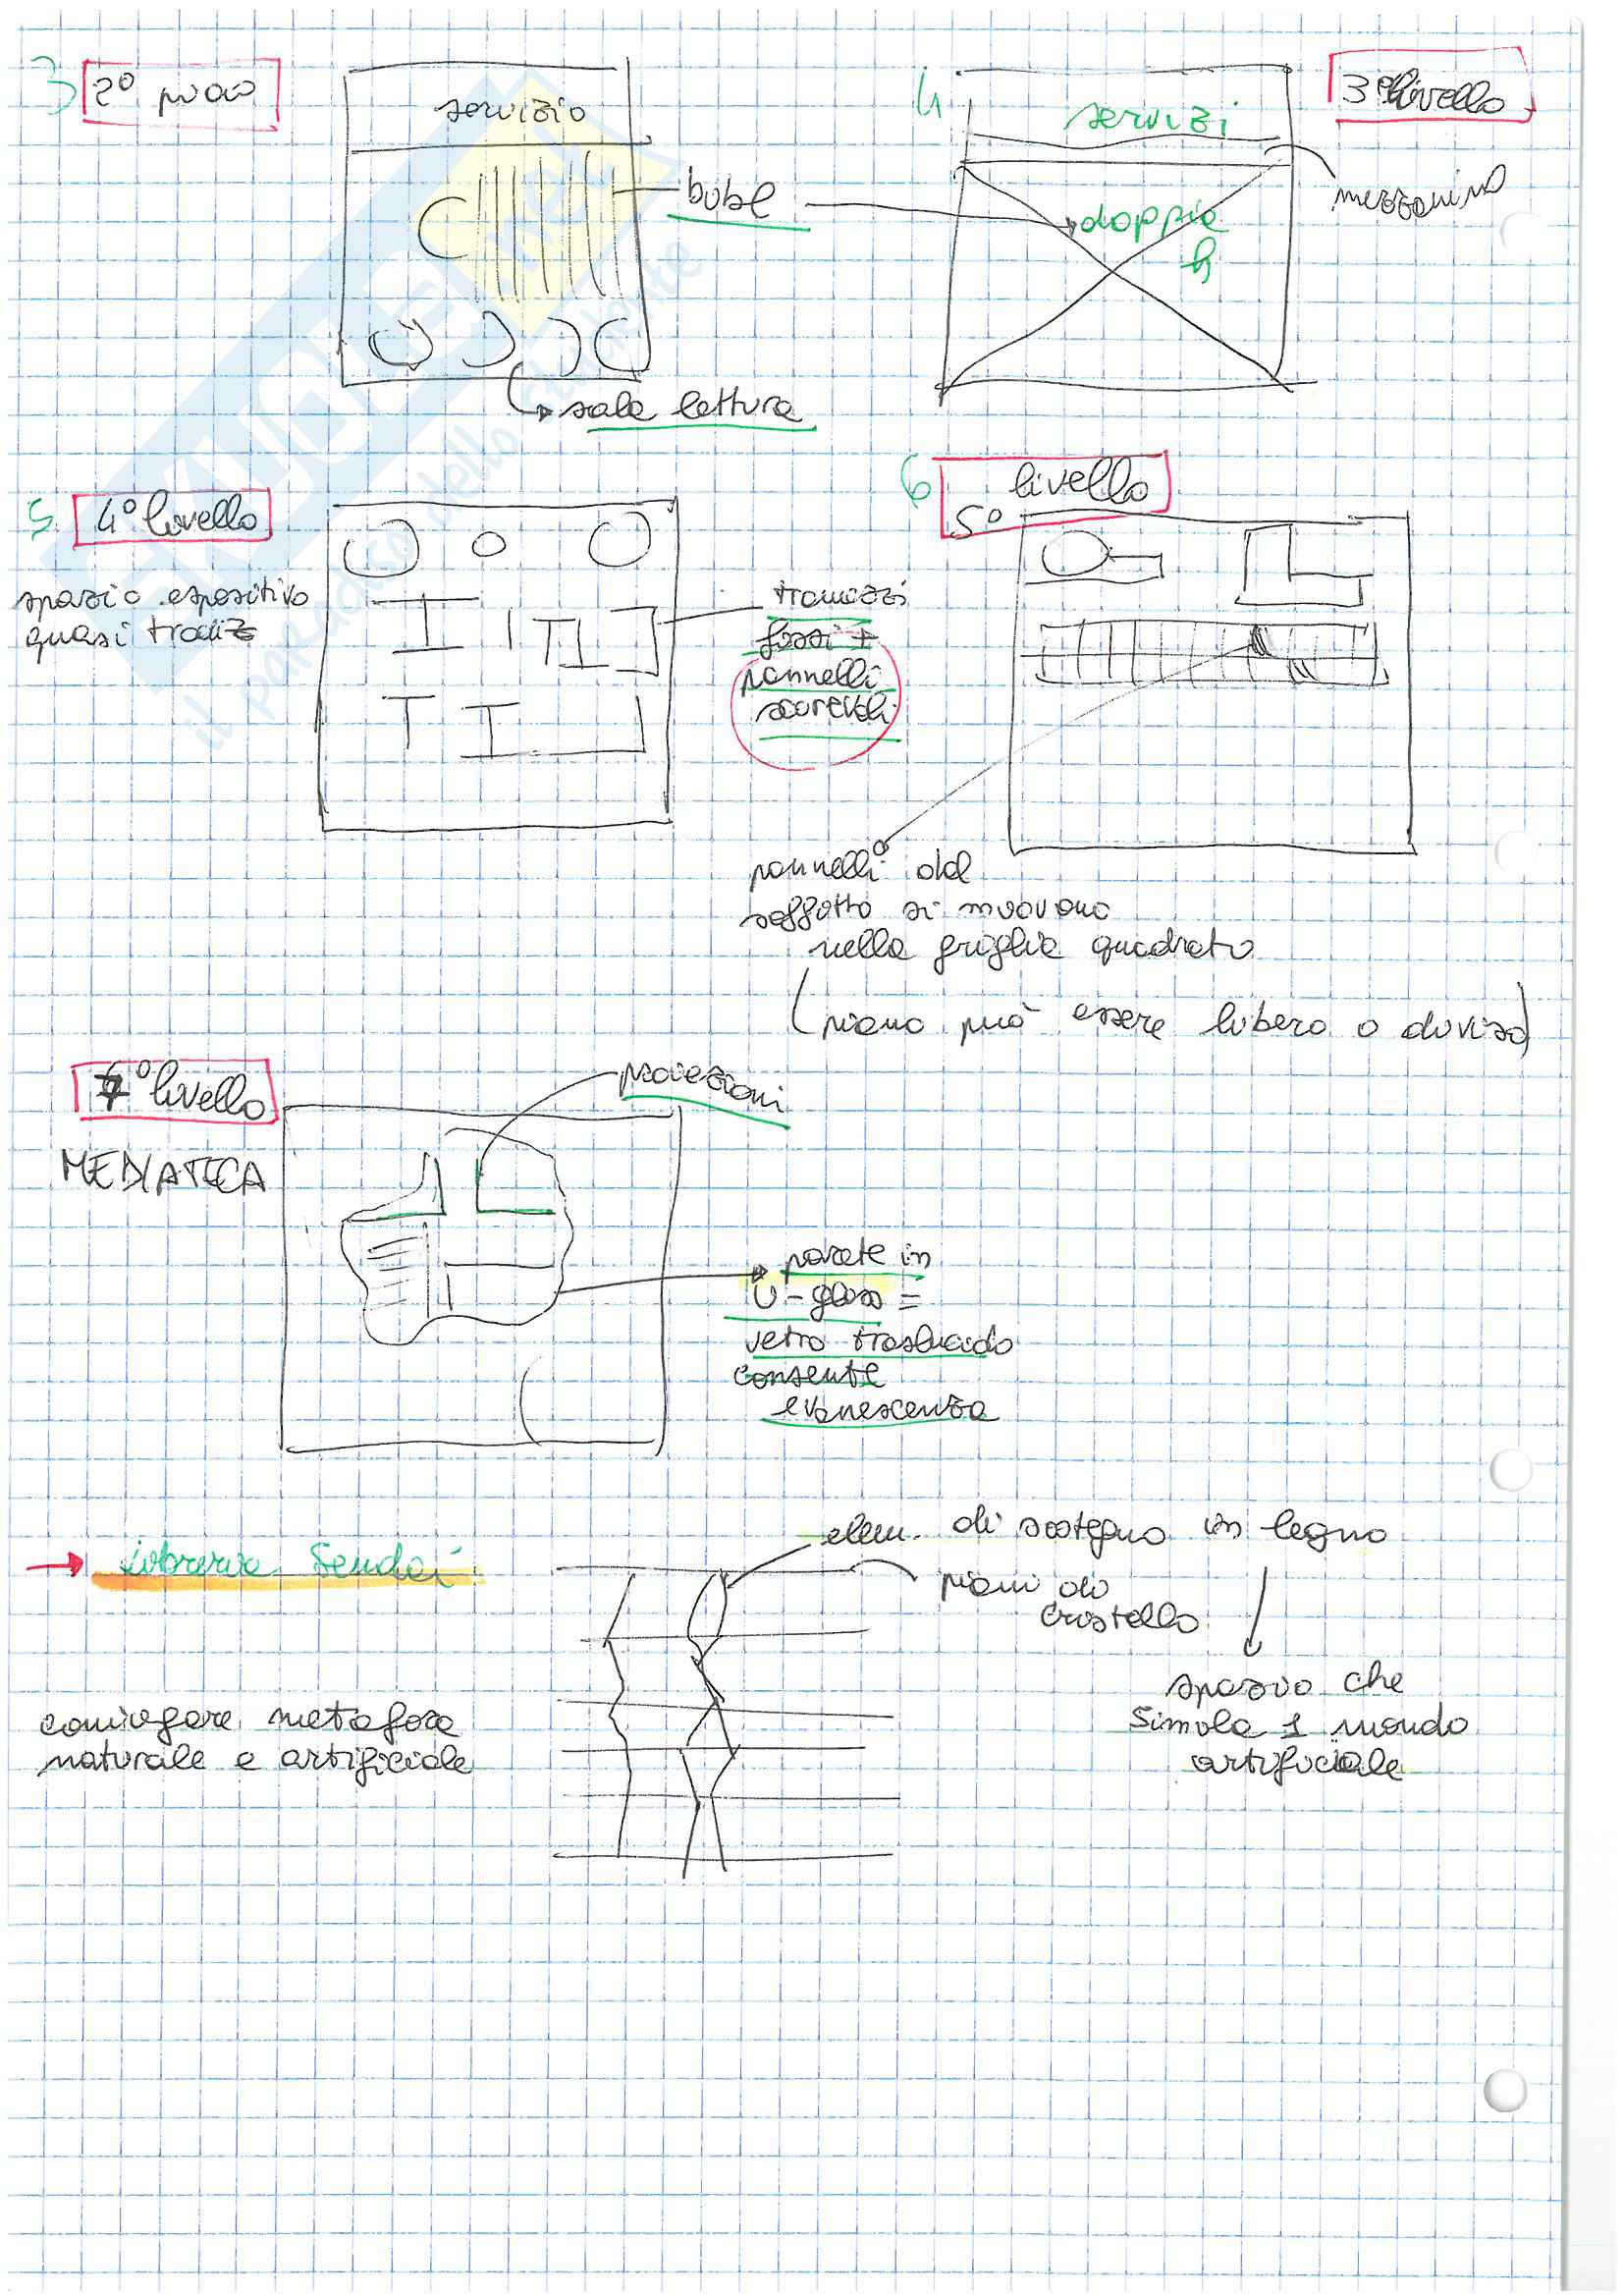 3 2° piano
servizio
4
servizi
3° livello
mezzanino
bibl
doppia
h
sala lettura
5 4° livello
spazio espositivo
quasi tradiz
tramezzi
fissi +
pannelli
scorevoli
6 livello
5°
pannelli del
soffitto si muovono
nella griglia quadrata
(piano può essere libero o diviso)
° livello
MEDIATECA
proiezioni
parete in
U-glass =
vetro traslucido
consente
evanescenza
→ libreria Sendai
elem. di sostegno in legno
piani di
cristallo
spazio che
simula 1 mondo
artificiale
coniugare metafora
naturale e artificiale